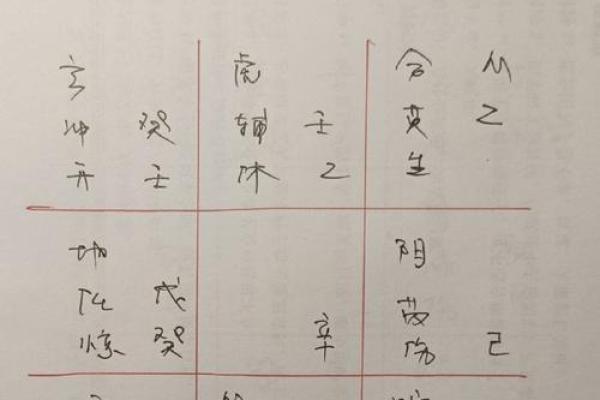 玄 虎 合
冲 癸 辅 壬 英 乙
开 壬 休 乙 生
地 阴
任 戊 芮
惊 癸 辛 伤 己